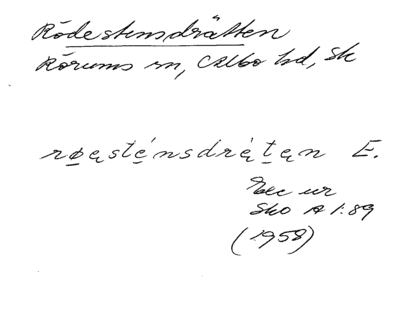 Rödestensdrätten
Rörums sn, Albo hd, Sk
rø̨ąsténsdrętąn E.
Exc ur
Sko A 1:89
(1958)